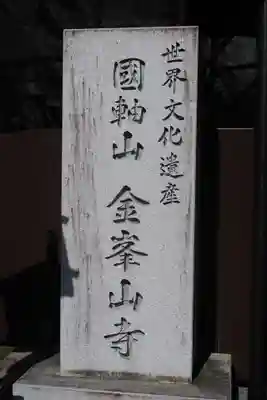 世界文化遺産
國軸山 金峯山寺